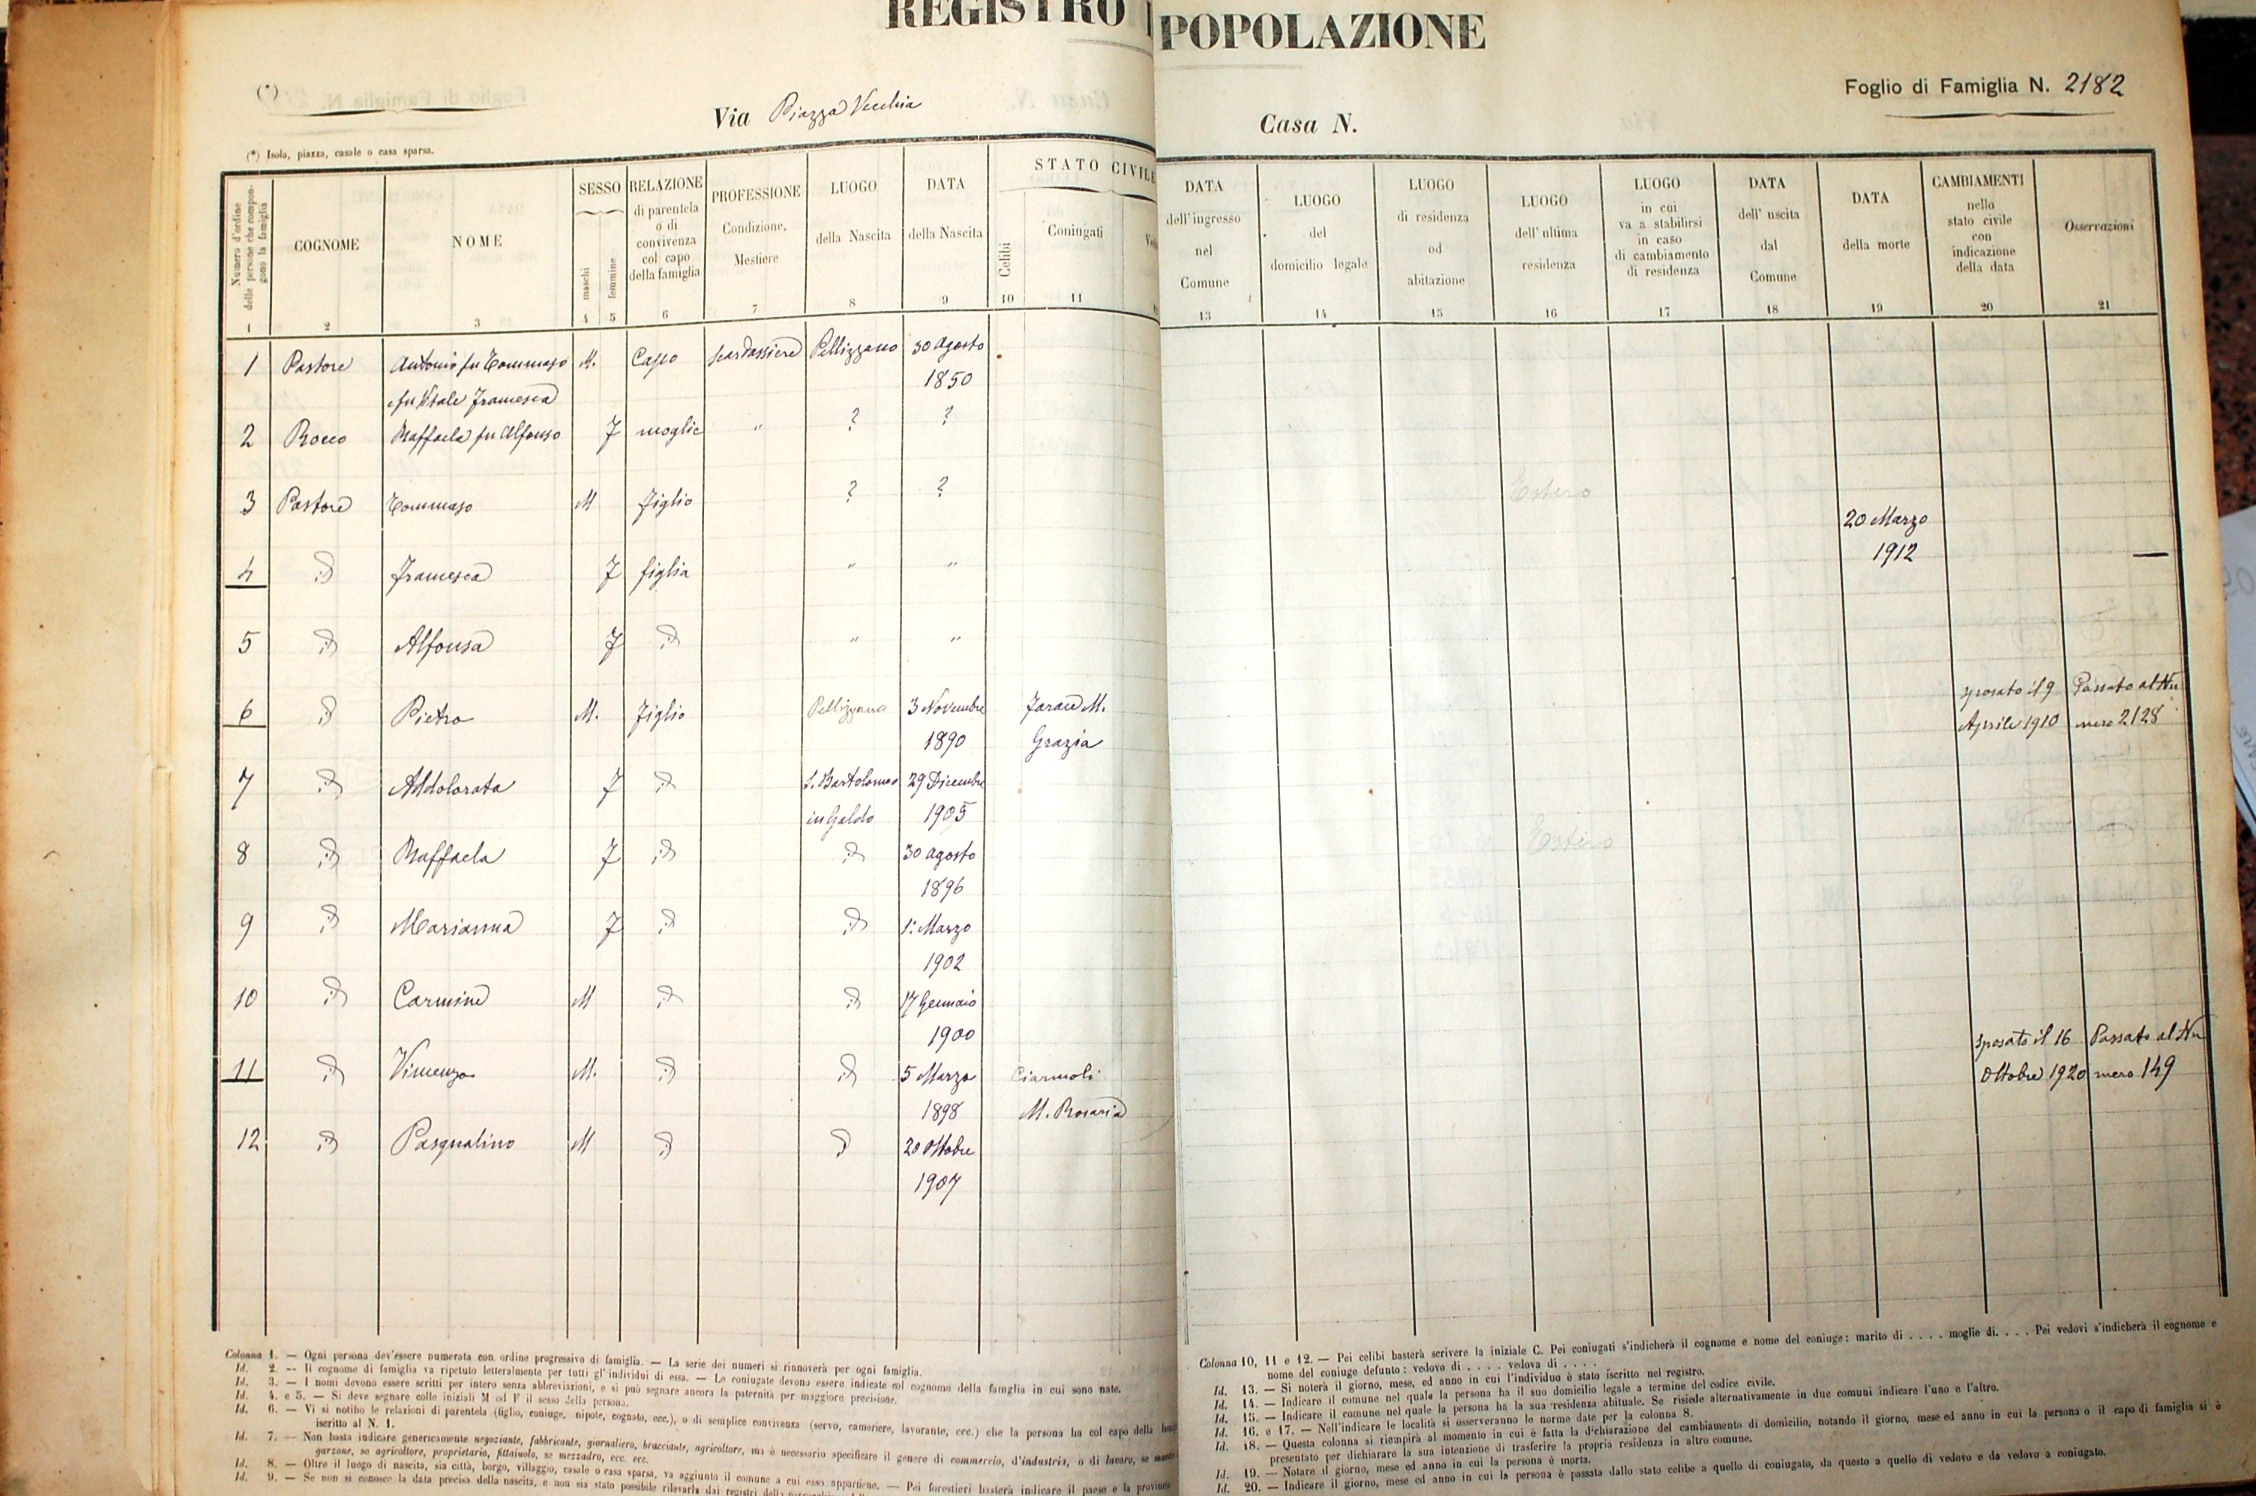 REGISTRO POPOLAZIONE
(*)
Via Piazza Vecchia
Casa N.
Foglio di Famiglia N. 2182
(*) Isola, piazza, casale o casa sparsa.
Numero d'ordine delle persone che compongono la famiglia
COGNOME
NOME
SESSO
maschi
femmine
RELAZIONE di parentela o di convivenza col capo della famiglia
PROFESSIONE Condizione, Mestiere
LUOGO della Nascita
DATA della Nascita
STATO CIVILE
Celibi
Coniugati
DATA dell'ingresso nel Comune
LUOGO del domicilio legale
LUOGO di residenza od abitazione
LUOGO dell'ultima residenza
LUOGO in cui va a stabilirsi in caso di cambiamento di residenza
DATA dell'uscita dal Comune
DATA della morte
CAMBIAMENTI nello stato civile con indicazione della data
Osservazioni
1 2 3 4 5 6 7 8 9 10 11 13 14 15 16 17 18 19 20 21
1 Pastore Antonio fu Tommaso M. Capo scardassiere Pellizzano 30 Agosto
e fu Vitale Francesca 1850
2 Rocco Raffaela fu Alfonso F moglie " ? ?
3 Pastore Tommaso M figlio ? ? Estero
20 Marzo
1912 —
4 id Francesca F figlia " "
5 id Alfonsa F id " "
6 id Pietro M. figlio Pellizzano 3 Novembre M. sposato il 9 Passato al Nu
1890 Grazia Aprile 1910 mero 2128
7 id Addolorata F id S. Bartolomeo 29 Dicembre
in Galdo 1905
8 id Raffaela F id id 30 Agosto Estero
1896
9 id Marianna F id id 1: Marzo
1902
10 id Carmine M id id 17 Gennaio
1900
11 id Vincenzo M. id id 5 Marzo Ciarmoli sposato il 16 Passato al Nu
1898 M. Rosaria Ottobre 1920 mero 149
12 id Pasqualino M id id 20 Ottobre
1907
Colonna 1. — Ogni persona dev'essere numerata con ordine progressivo di famiglia. — La serie dei numeri si rinnoverà per ogni famiglia.
Id. 2. — Il cognome di famiglia va ripetuto letteralmente per tutti gl'individui di essa. — Le coniugate devono essere indicate col cognome della famiglia in cui sono nate.
Id. 3. — I nomi devono essere scritti per intero senza abbreviazioni, e si può segnare ancora la paternità per maggiore precisione.
Id. 4. e 5. — Si deve segnare colle iniziali M od F il sesso della persona.
Id. 6. — Vi si notino le relazioni di parentela (figlio, coniuge, nipote, cognato, ecc.), o di semplice convivenza (servo, cameriere, lavorante, ecc.) che la persona ha col capo della
iscritto al N. 1.
Id. 7. — Non basta indicare genericamente negoziante, fabbricante, giornaliero, bracciante, agricoltore, ma è necessario specificare il genere di commercio, d'industria, o di lavoro, se
garzone, se agricoltore, proprietario, fittaiuolo, se mezzadro, ecc. ecc.
Id. 8. — Oltre il luogo di nascita, sia città, borgo, villaggio, casale o casa sparsa, va aggiunto il comune a cui esso appartiene. — Pei forestieri basterà indicare il paese e la
Id. 9. — Se non si conosce la data precisa della nascita, e non sia stato possibile rilevarla dai registri
Colonna 10, 11 e 12. — Pei celibi basterà scrivere la iniziale C. Pei coniugati s'indicherà il cognome e nome del coniuge: marito di . . . . moglie di. . . . Pei vedovi s'indicherà il cognome e
nome del coniuge defunto: vedovo di . . . . vedova di . . . .
Id. 13. — Si noterà il giorno, mese, ed anno in cui l'individuo è stato iscritto nel registro.
Id. 14. — Indicare il comune nel quale la persona ha il suo domicilio legale a termine del codice civile.
Id. 15. — Indicare il comune nel quale la persona ha la sua residenza abituale. Se risiede alternativamente in due comuni indicare l'uno e l'altro.
Id. 16. e 17. — Nell'indicare le località si osserveranno le norme date per la colonna 8.
Id. 18. — Questa colonna si riempirà al momento in cui è fatta la dichiarazione del cambiamento di domicilio, notando il giorno, mese ed anno in cui la persona o il capo di famiglia si è
presentato per dichiarare la sua intenzione di trasferire la propria residenza in altro comune.
Id. 19. — Notare il giorno, mese ed anno in cui la persona è morta.
Id. 20. — Indicare il giorno, mese ed anno in cui la persona è passata dallo stato celibe a quello di coniugato, da questo a quello di vedovo e da vedovo a coniugato.